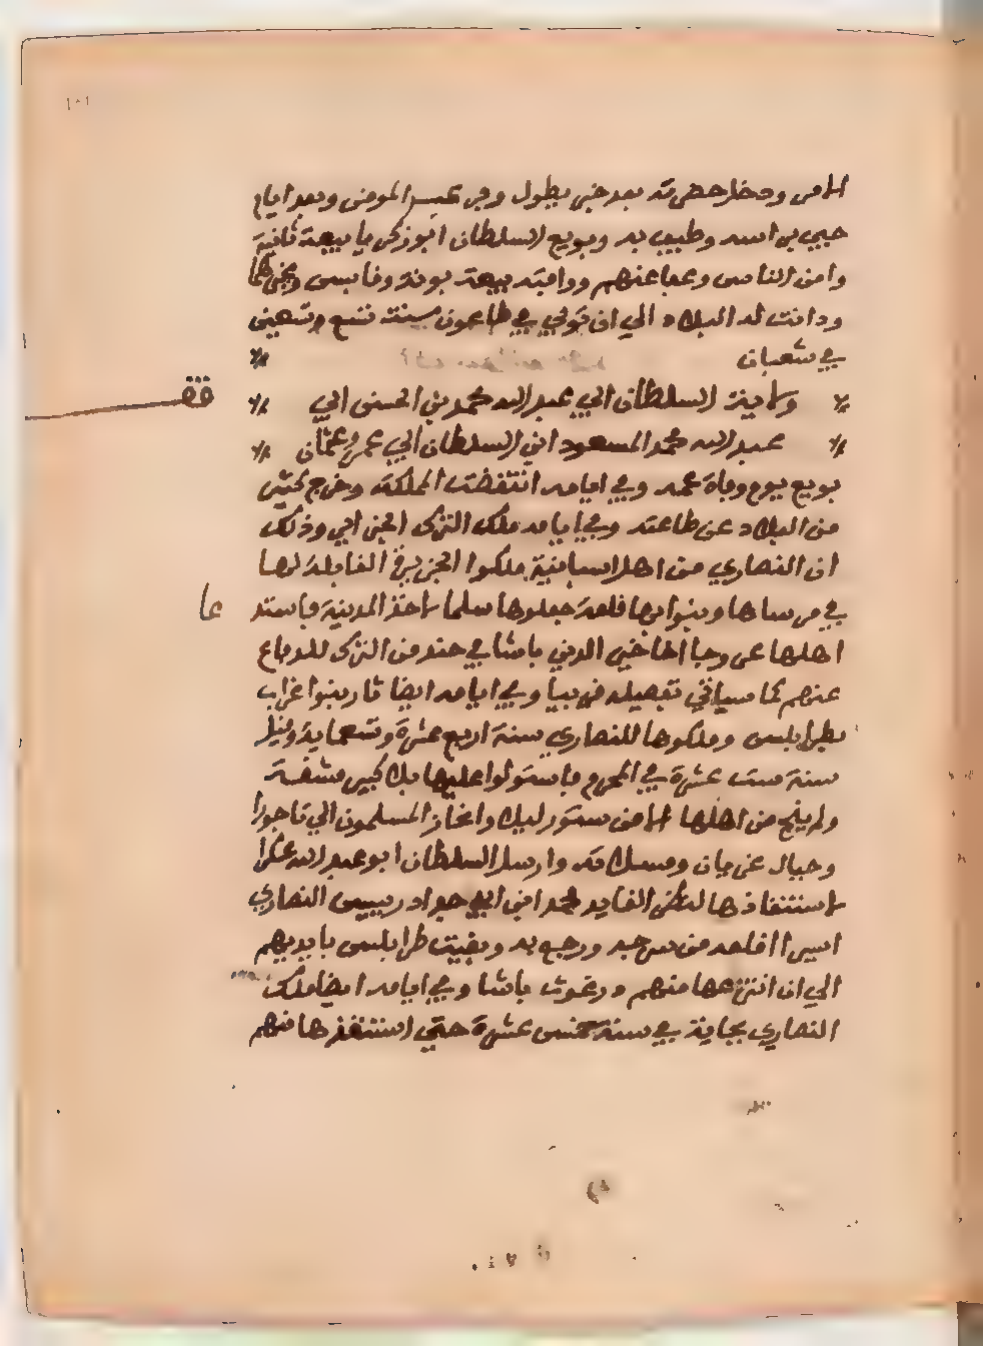 الامر ودخل حضرته بعد خبر يطول وفر عبد المومن وبعد ايام
جيء براسه وطيف به وبويع السلطان ابو زكريا بيعة ثانية
وامن الناس وعفا عنهم ووافته بيعة بونة وفابس وغيرهما
ودانت له البلاد الي ان توفي في طاعون سنة تسع وتسعين
في شعبان
ولاية السلطان ابي عبد الله محمد بن الحسن ابي
عبد الله محمد المسعود ابن السلطان ابي عمر عثمان
بويع يوم وفاة عمه وفي ايامه انتفضت المملكة وخرج كثير
من البلاد عن طاعته وفي ايامه ملك الترك الجزاير وذلك
ان النصاري من اهل اسبانية ملكوا الجزيرة القابلة لها
في مرساها وبنوا بها قلعة جعلوها سلما لاخذ المدينة فاستد
عا
اهلها عروجا اخا خير الدين باشا في جند من الترك للدفاع
عنهم كما سياتي تفصيله قريبا وفي ايامه ايضا ثار بنوا غراب
بطرابلس وملكوها للنصاري سنة اربع عشرة وتسعماية وفيل
سنة ست عشرة في المحرم فاستولوا عليها بلا كبير مشقة
ولم ينج من اهلها الا من تسور ليلا وانحاز المسلمون الي تاجورا
وجبال غريان ومسلاتة وارسل السلطان ابو عبد الله عسكرا
لاستنقاذها لنظر القايد محمد ابن ابي حداد رييس النصاري
اسيرا اقلعه من سرجه ورجع به وبقيت طرابلس بايديهم
الي ان انتزعها منهم درغوث باشا وفي ايامه ايضا ملك
النصاري بجاية في سنة خمس عشرة حتي استنقذها منهم